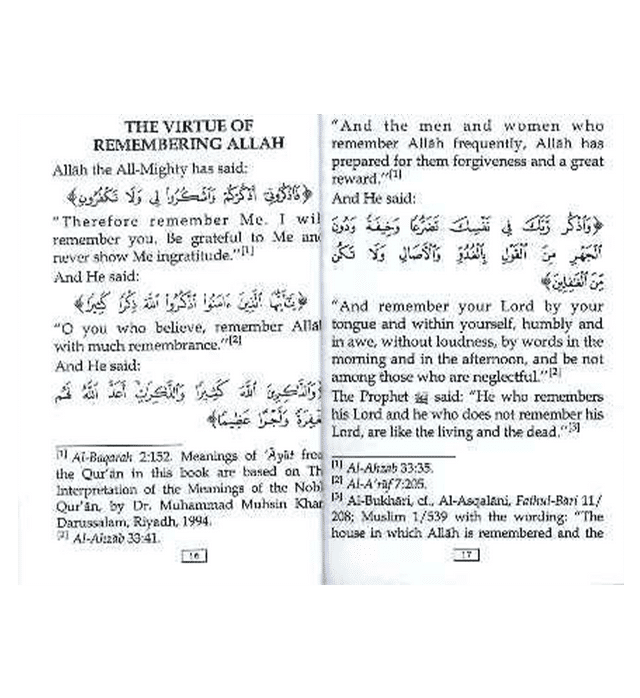 THE VIRTUE OF
REMEMBERING ALLAH
Allāh the All-Mighty has said:
﴿فَاذْكُرُونِي أَذْكُرْكُمْ وَاشْكُرُوا لِي وَلَا تَكْفُرُونِ﴾
"Therefore remember Me. I will
remember you. Be grateful to Me and
never show Me ingratitude."[1]
And He said:
﴿يَٰأَيُّهَا الَّذِينَ ءَامَنُوا اذْكُرُوا اللَّهَ ذِكْرًا كَثِيرًا﴾
"O you who believe, remember Allāh
with much remembrance."[2]
And He said:
وَالذَّٰكِرِينَ اللَّهَ كَثِيرًا وَالذَّٰكِرَٰتِ أَعَدَّ اللَّهُ لَهُم
مَّغْفِرَةً وَأَجْرًا عَظِيمًا﴾
[1] Al-Baqarah 2:152. Meanings of 'Āyāt from
the Qur'ān in this book are based on Th
Interpretation of the Meanings of the Nobl
Qur'ān, by Dr. Muhammad Muhsin Khan
Darussalam, Riyadh, 1994.
[2] Al-Ahzab 33:41.
16
"And the men and women who
remember Allāh frequently, Allāh has
prepared for them forgiveness and a great
reward."[1]
And He said:
﴿وَاذْكُر رَّبَّكَ فِي نَفْسِكَ تَضَرُّعًا وَخِيفَةً وَدُونَ
الْجَهْرِ مِنَ الْقَوْلِ بِالْغُدُوِّ وَالْآصَالِ وَلَا تَكُن
مِّنَ الْغَٰفِلِينَ﴾
"And remember your Lord by your
tongue and within yourself, humbly and
in awe, without loudness, by words in the
morning and in the afternoon, and be not
among those who are neglectful."[2]
The Prophet ﷺ said: "He who remembers
his Lord and he who does not remember his
Lord, are like the living and the dead."[3]
[1] Al-Ahzab 33:35.
[2] Al-A'rāf 7:205.
[3] Al-Bukhāri, cf., Al-Asqalāni, Fathul-Bāri 11/
208; Muslim 1/539 with the wording: "The
house in which Allāh is remembered and the
17